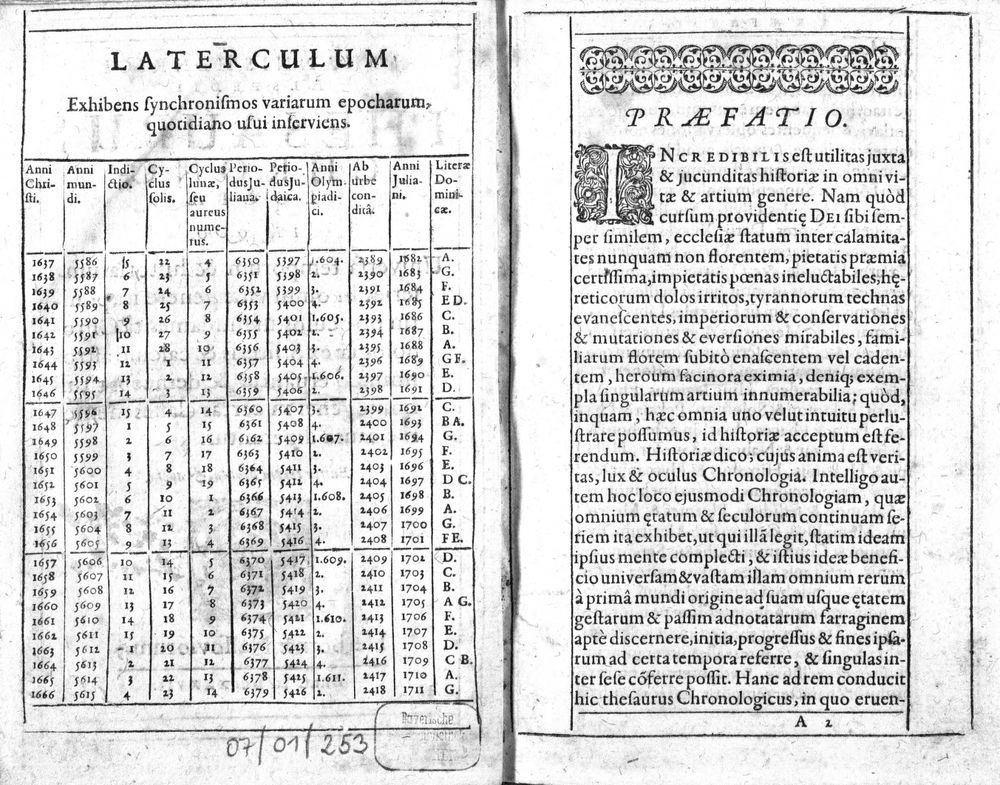 LATERCULUM
Exhibens ſynchroniſmos variarum epocharum,
quotidiano uſui inſerviens.
Anni Chri- ſti.
Anni mun- di.
Indi- ctio.
Cy- clus ſolis.
Cyclus lunæ, ſeu aureus nume- rus.
Perio- dus Ju- liana.
Perio- dus Ju- daica.
Anni Olym piadi- ci.
Ab urbe con- ditâ.
Anni Julia- ni.
Literæ Do- mini- cæ.
1637 5586 5 22 4 6350 5397 1.604. 2389 1682 A.
1638 5587 6 23 5 6351 5398 2. 2390 1683 G.
1639 5588 7 24 6 6352 5399 3. 2391 1684 F.
1640 5589 8 25 7 6353 5400 4. 2392 1685 E D.
1641 5590 9 26 8 6354 5401 1.605. 2393 1686 C.
1642 5591 10 27 9 6355 5402 2. 2394 1687 B.
1643 5592 11 28 10 6356 5403 3. 2395 1688 A.
1644 5593 12 1 11 6357 5404 4. 2396 1689 G F.
1645 5594 13 2 12 6358 5405 1.606. 2397 1690 E.
1646 5595 14 3 13 6359 5406 2. 2398 1691 D.
1647 5596 15 4 14 6360 5407 3. 2399 1692 C.
1648 5597 1 5 15 6361 5408 4. 2400 1693 B A.
1649 5598 2 6 16 6362 5409 1.607. 2401 1694 G.
1650 5599 3 7 17 6363 5410 2. 2402 1695 F.
1651 5600 4 8 18 6364 5411 3. 2403 1696 E.
1652 5601 5 9 19 6365 5412 4. 2404 1697 D C.
1653 5602 6 10 1 6366 5413 1.608. 2405 1698 B.
1654 5603 7 11 2 6367 5414 2. 2406 1699 A.
1655 5604 8 12 3 6368 5415 3. 2407 1700 G.
1656 5605 9 13 4 6369 5416 4. 2408 1701 F E.
1657 5606 10 14 5 6370 5417 1.609. 2409 1702 D.
1658 5607 11 15 6 6371 5418 2. 2410 1703 C.
1659 5608 12 16 7 6372 5419 3. 2411 1704 B.
1660 5609 13 17 8 6373 5420 4. 2412 1705 A G.
1661 5610 14 18 9 6374 5421 1.610. 2413 1706 F.
1662 5611 15 19 10 6375 5422 2. 2414 1707 E.
1663 5612 1 20 11 6376 5423 3. 2415 1708 D.
1664 5613 2 21 12 6377 5424 4. 2416 1709 C B.
1665 5614 3 22 13 6378 5425 1.611. 2417 1710 A.
1666 5615 4 23 14 6379 5426 2. 2418 1711 G.
07/01/253
Bayerische
PRÆFATIO.
INCREDIBILIS eſt utilitas juxta
& jucunditas hiſtoriæ in omni vi-
tæ & artium genere. Nam quòd
curſum providentię DEI ſibi ſem-
per ſimilem, eccleſiæ ſtatum inter calamita-
tes nunquam non florentem, pietatis præmia
certiſſima, impietatis pœnas ineluctabiles, hę-
reticorum dolos irritos, tyrannorum technas
evaneſcentes, imperiorum & conſervationes
& mutationes & everſiones mirabiles, fami-
liarum florem ſubitò enaſcentem vel caden-
tem, heroum facinora eximia, deniq; exem-
pla ſingularum artium innumerabilia; quòd,
inquam, hæc omnia uno velut intuitu perlu-
ſtrare poſſumus, id hiſtoriæ acceptum eſt fe-
rendum. Hiſtoriæ dico; cujus anima eſt veri-
tas, lux & oculus Chronologia. Intelligo au-
tem hoc loco ejusmodi Chronologiam, quæ
omnium ętatum & ſeculorum continuam ſe-
riem ita exhibet, ut qui illã legit, ſtatim ideam
ipſius mente complecti, & iſtius ideæ benefi-
cio univerſam & vaſtam illam omnium rerum
à primâ mundi origine ad ſuam uſque ętatem
geſtarum & paſſim adnotatarum farraginem
aptè diſcernere, initia, progreſſus & fines ipſa-
rum ad certa tempora referre, & ſingulas in-
ter ſeſe cõferre poſſit. Hanc ad rem conducit
hic theſaurus Chronologicus, in quo eruen-
A 2